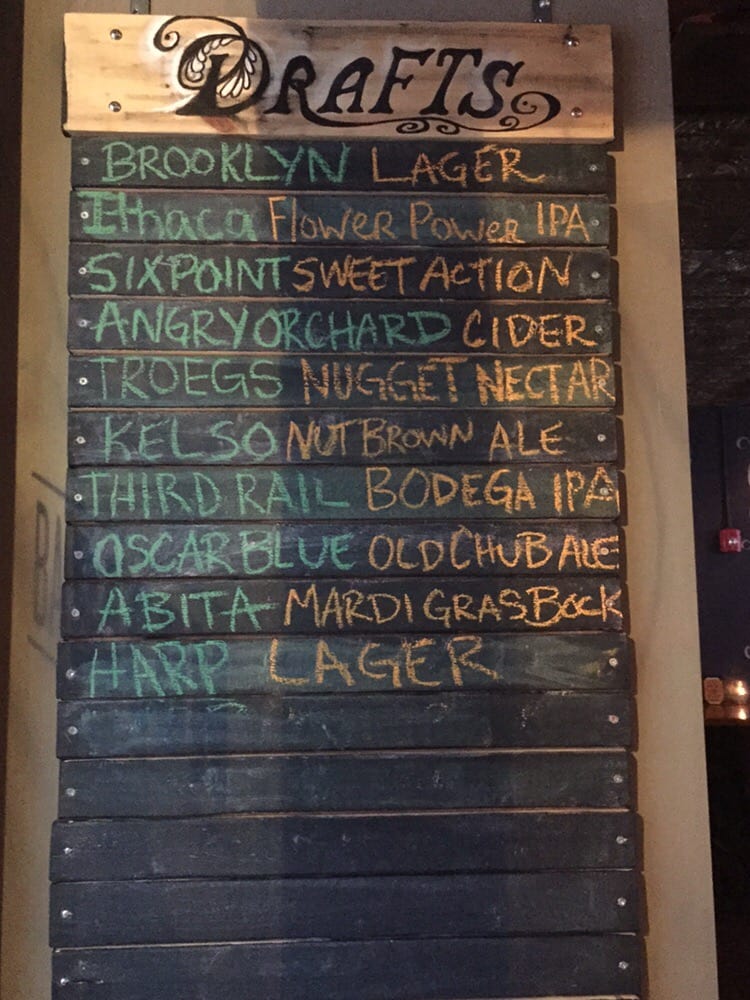 DRAFTS
BROOKLYN LAGER
Ithaca Flower Power IPA
SIXPOINT SWEET ACTION
ANGRY ORCHARD CIDER
TROEGS NUGGET NECTAR
KELSO NUT BROWN ALE
THIRD RAIL BODEGA IPA
OSCAR BLUE OLD CHUB ALE
ABITA MARDI GRAS BOCK
HARP LAGER